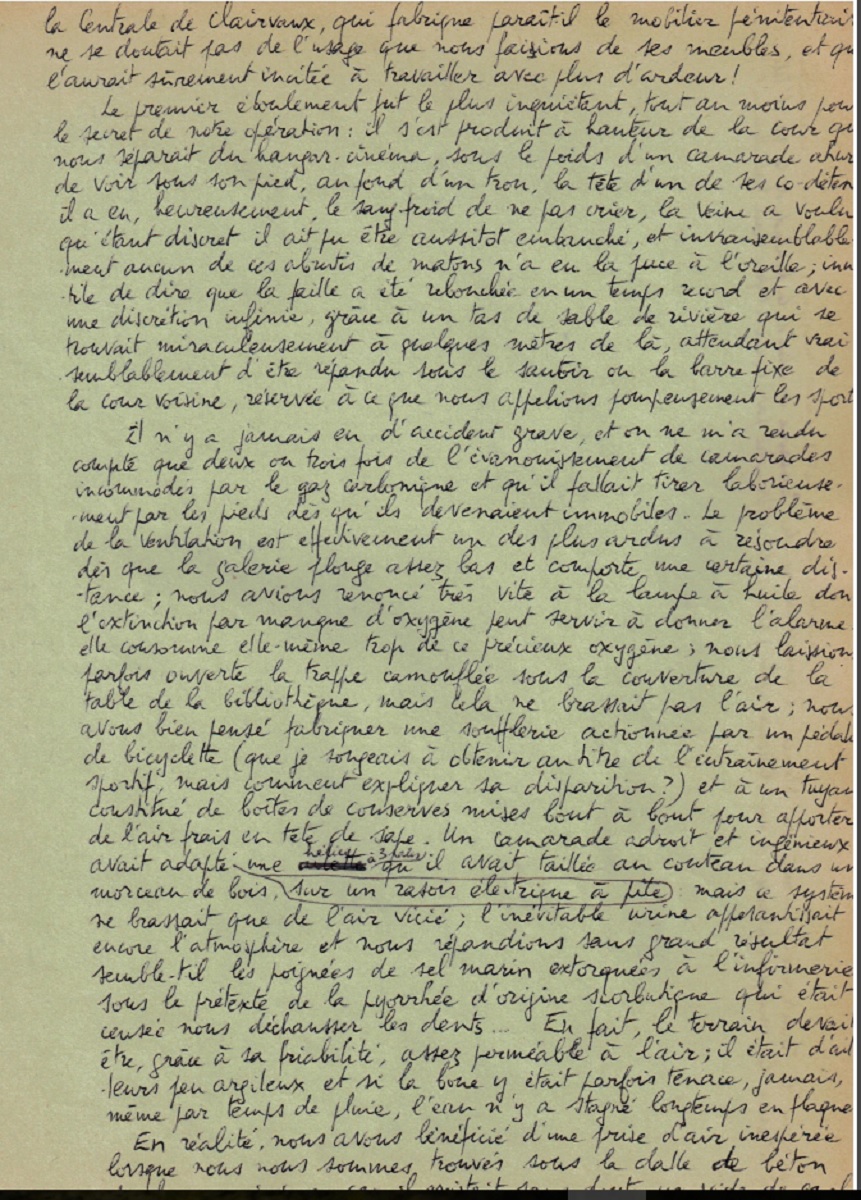 la Centrale de Clairvaux, qui fabrique paraît-il le mobilier pénitentiair
ne se doutait pas de l'usage que nous faisions de ses meubles, et qu
l'aurait sûrement incitée à travailler avec plus d'ardeur !
Le premier éboulement fut le plus inquiétant, tout au moins pour
le secret de notre opération : il s'est produit à hauteur de la cour qu
nous séparait du hangar-cinéma, sous le poids d'un camarade ahur
de voir sous son pied, au fond d'un trou, la tête d'un de ses co-déten
il a eu, heureusement, le sang-froid de ne pas crier, la veine a voulu
qu'étant discret il ait pu être aussitôt embauché, et invraisemblable
-ment aucun de ces abrutis de matons n'a eu la puce à l'oreille ; inu
-tile de dire que la faille a été rebouchée en un temps record et avec
une discrétion infinie, grâce à un tas de sable de rivière qui se
trouvait miraculeusement à quelques mètres de là, attendant vrai
semblablement d'être répandu sous le sautoir ou la barre fixe de
la cour voisine, réservée à ce que nous appelions pompeusement les sport
Il n'y a jamais eu d'accident grave, et on ne m'a rendu
compte que deux ou trois fois de l'évanouissement de camarades
incommodés par le gaz carbonique et qu'il fallait tirer laborieuse-
-ment par les pieds dès qu'ils devenaient immobiles. Le problème
de la ventilation est effectivement un des plus ardus à résoudre
dès que la galerie plonge assez bas et comporte une certaine dis-
-tance ; nous avions renoncé très vite à la lampe à huile don
l'extinction par manque d'oxygène peut servir à donner l'alarme
elle consomme elle-même trop de ce précieux oxygène ; nous laission
parfois ouverte la trappe camouflée sous la couverture de la
table de la bibliothèque, mais cela ne brassait pas l'air ; nous
avons bien pensé fabriquer une soufflerie actionnée par un pédal
de bicyclette (que je songeais à obtenir au titre de l'entraînement
sportif, mais comment expliquer sa disparition ?) et à un tuyau
constitué de boîtes de conserves mises bout à bout pour apporter
de l'air frais en tête de sape. Un camarade adroit et ingénieux
avait adapté une hélice à 3 pales qu'il avait taillée au couteau dans un
morceau de bois, sur un rasoir électrique à pile : mais ce system
ne brassait que de l'air vicié ; l'inévitable urine appesantissait
encore l'atmosphère et nous répandions sans grand résultat
semble-t-il les poignées de sel marin extorquées à l'infirmerie
sous le prétexte de la pyorrhée d'origine scorbutique qui était
censée nous déchausser les dents... En fait, le terrain devai
être, grâce à sa friabilité, assez perméable à l'air ; il était d'ail
-leurs peu argileux et si la boue y était parfois tenace, jamais,
même par temps de pluie, l'eau n'y a stagné longtemps en flaque
En réalité, nous avons bénéficié d'une prise d'air inespérée
lorsque nous nous sommes trouvés sous la dalle de béton